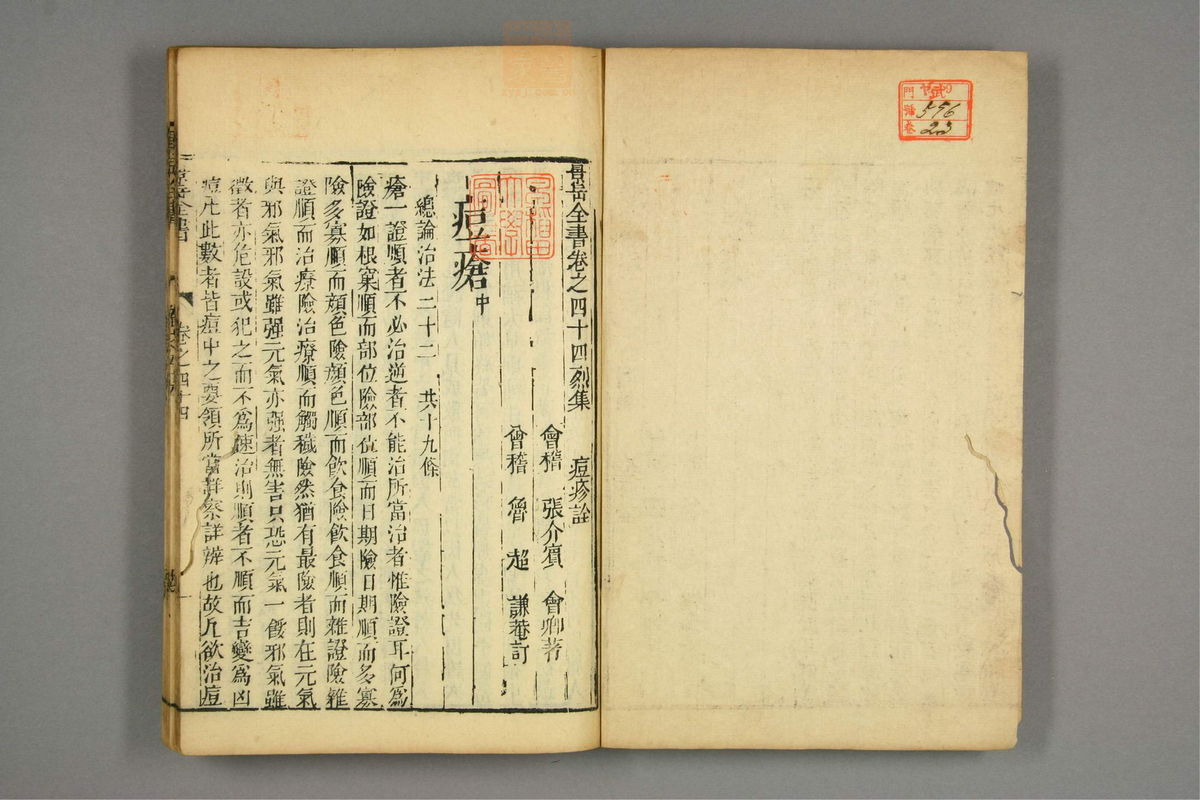 景岳全書卷之四十四烈集 痘疹詮
會稽 張介賓 會卿著
會稽 魯超 謙菴訂
痘瘡中
總論治法二十二 共十九條
瘡一證順者不必治逆者不能治所當治者惟險證耳何爲
險證如根窠順而部位險部位順而日期險日期順而多寡
險多寡順而顔色險顔色順而飲食險飲食順而雜證險雜
證順而治療險治療順而觸穢險然猶有最險者則在元氣
與邪氣邪氣雖强元氣亦强者無害只恐元氣一餒邪氣雖
微者亦危設或犯之而不爲速治則順者不順而吉變爲凶
痘凡此數者皆痘中之要領所當詳察詳辨也故凡欲治痘
卷之四十四
門
號 596
卷 23